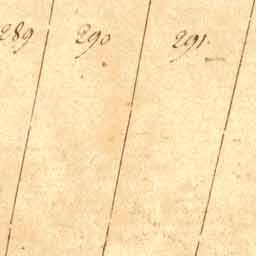 289 290 291.